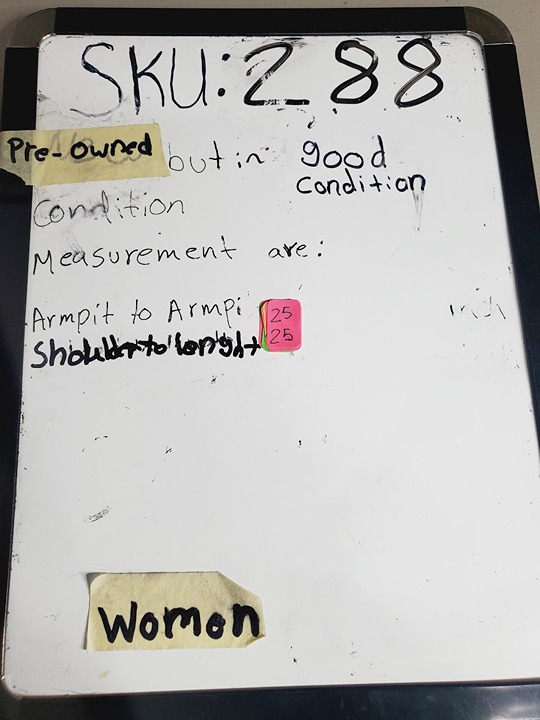 SKU: 288
Pre-owned but in good
condition
Condition
Measurement are:
Armpit to Armpi 25 inch
Sholder to longht 25
Women